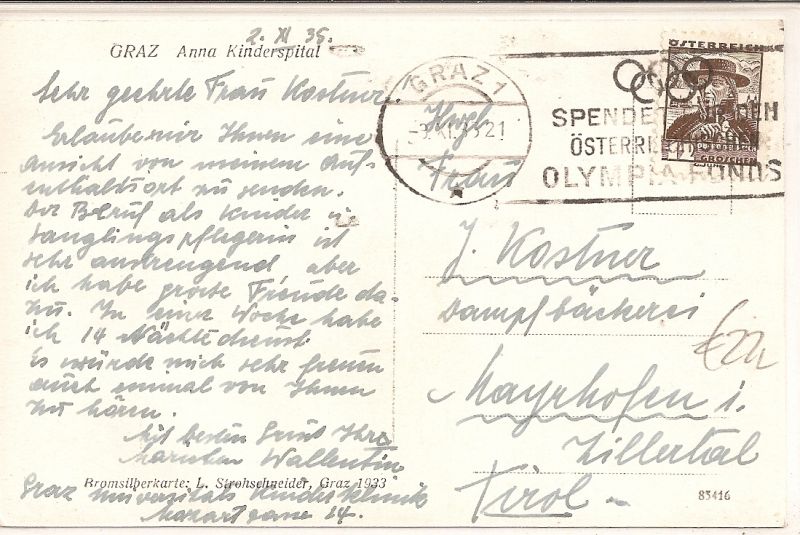 2. XI 35.
GRAZ Anna Kinderspital
Sehr geehrte Frau Kostner.
Erlaube mir Ihnen eine
Ansicht von meinem Auf-
enthaltsort zu senden.
Der Beruf als Kinder u
Sauglingspflegerin ist
sehr anstrengend, aber
ich habe große Freude da-
zu. In einer Woche habe
ich 14 Nächtedienst.
Es würde mich sehr freuen
auch einmal von Ihnen
zu hören.
Mit besten Gruß Ihre
Wallentin
Bromsilberkarte: L. Strohschneider, Graz 1933
Graz Universitäts Kinderklinik
Mozartgasse 14.
GRAZ 1
XI.35 21
SPENDET FÜR DEN
ÖSTERREICH
OLYMPIA-FONDS
ÖSTERREICH
12
GROSCHEN
Frau
J. Kostner
Dampfbäckerei
Mayrhofen i.
Zillertal
Tirol
83416